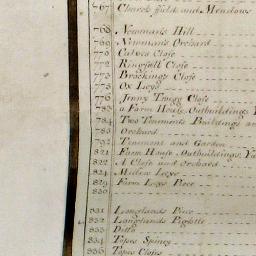 767 Church field and Meadows
768 Newmans Hill
769 Newmans Orchard
770 Calves Close
772 Ringsell Close
773 Brockings Close
775 Ox Leys
776 Jenny Trugg Close
783 a Farm House Outbuildings
784 Two Tenements Buildings an
785 Orchard
792 Tenement and Garden
821 Farm House Outbuildings Ya
822 A Close and Orchard
824
829 Farm Leys Piece
830
831 Longlands Piece
832 Longlands Pightle
833 Ditto
834 Tofses Spiney
836 Tofses Closes